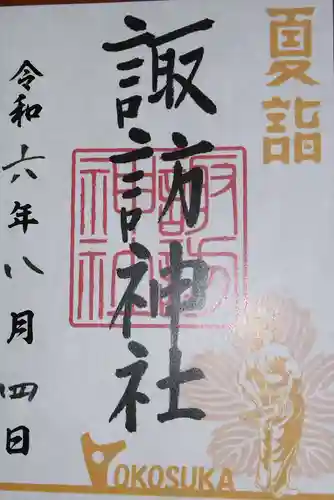 夏詣
諏訪神社
諏訪神社
令和六年八月四日
YOKOSUKA